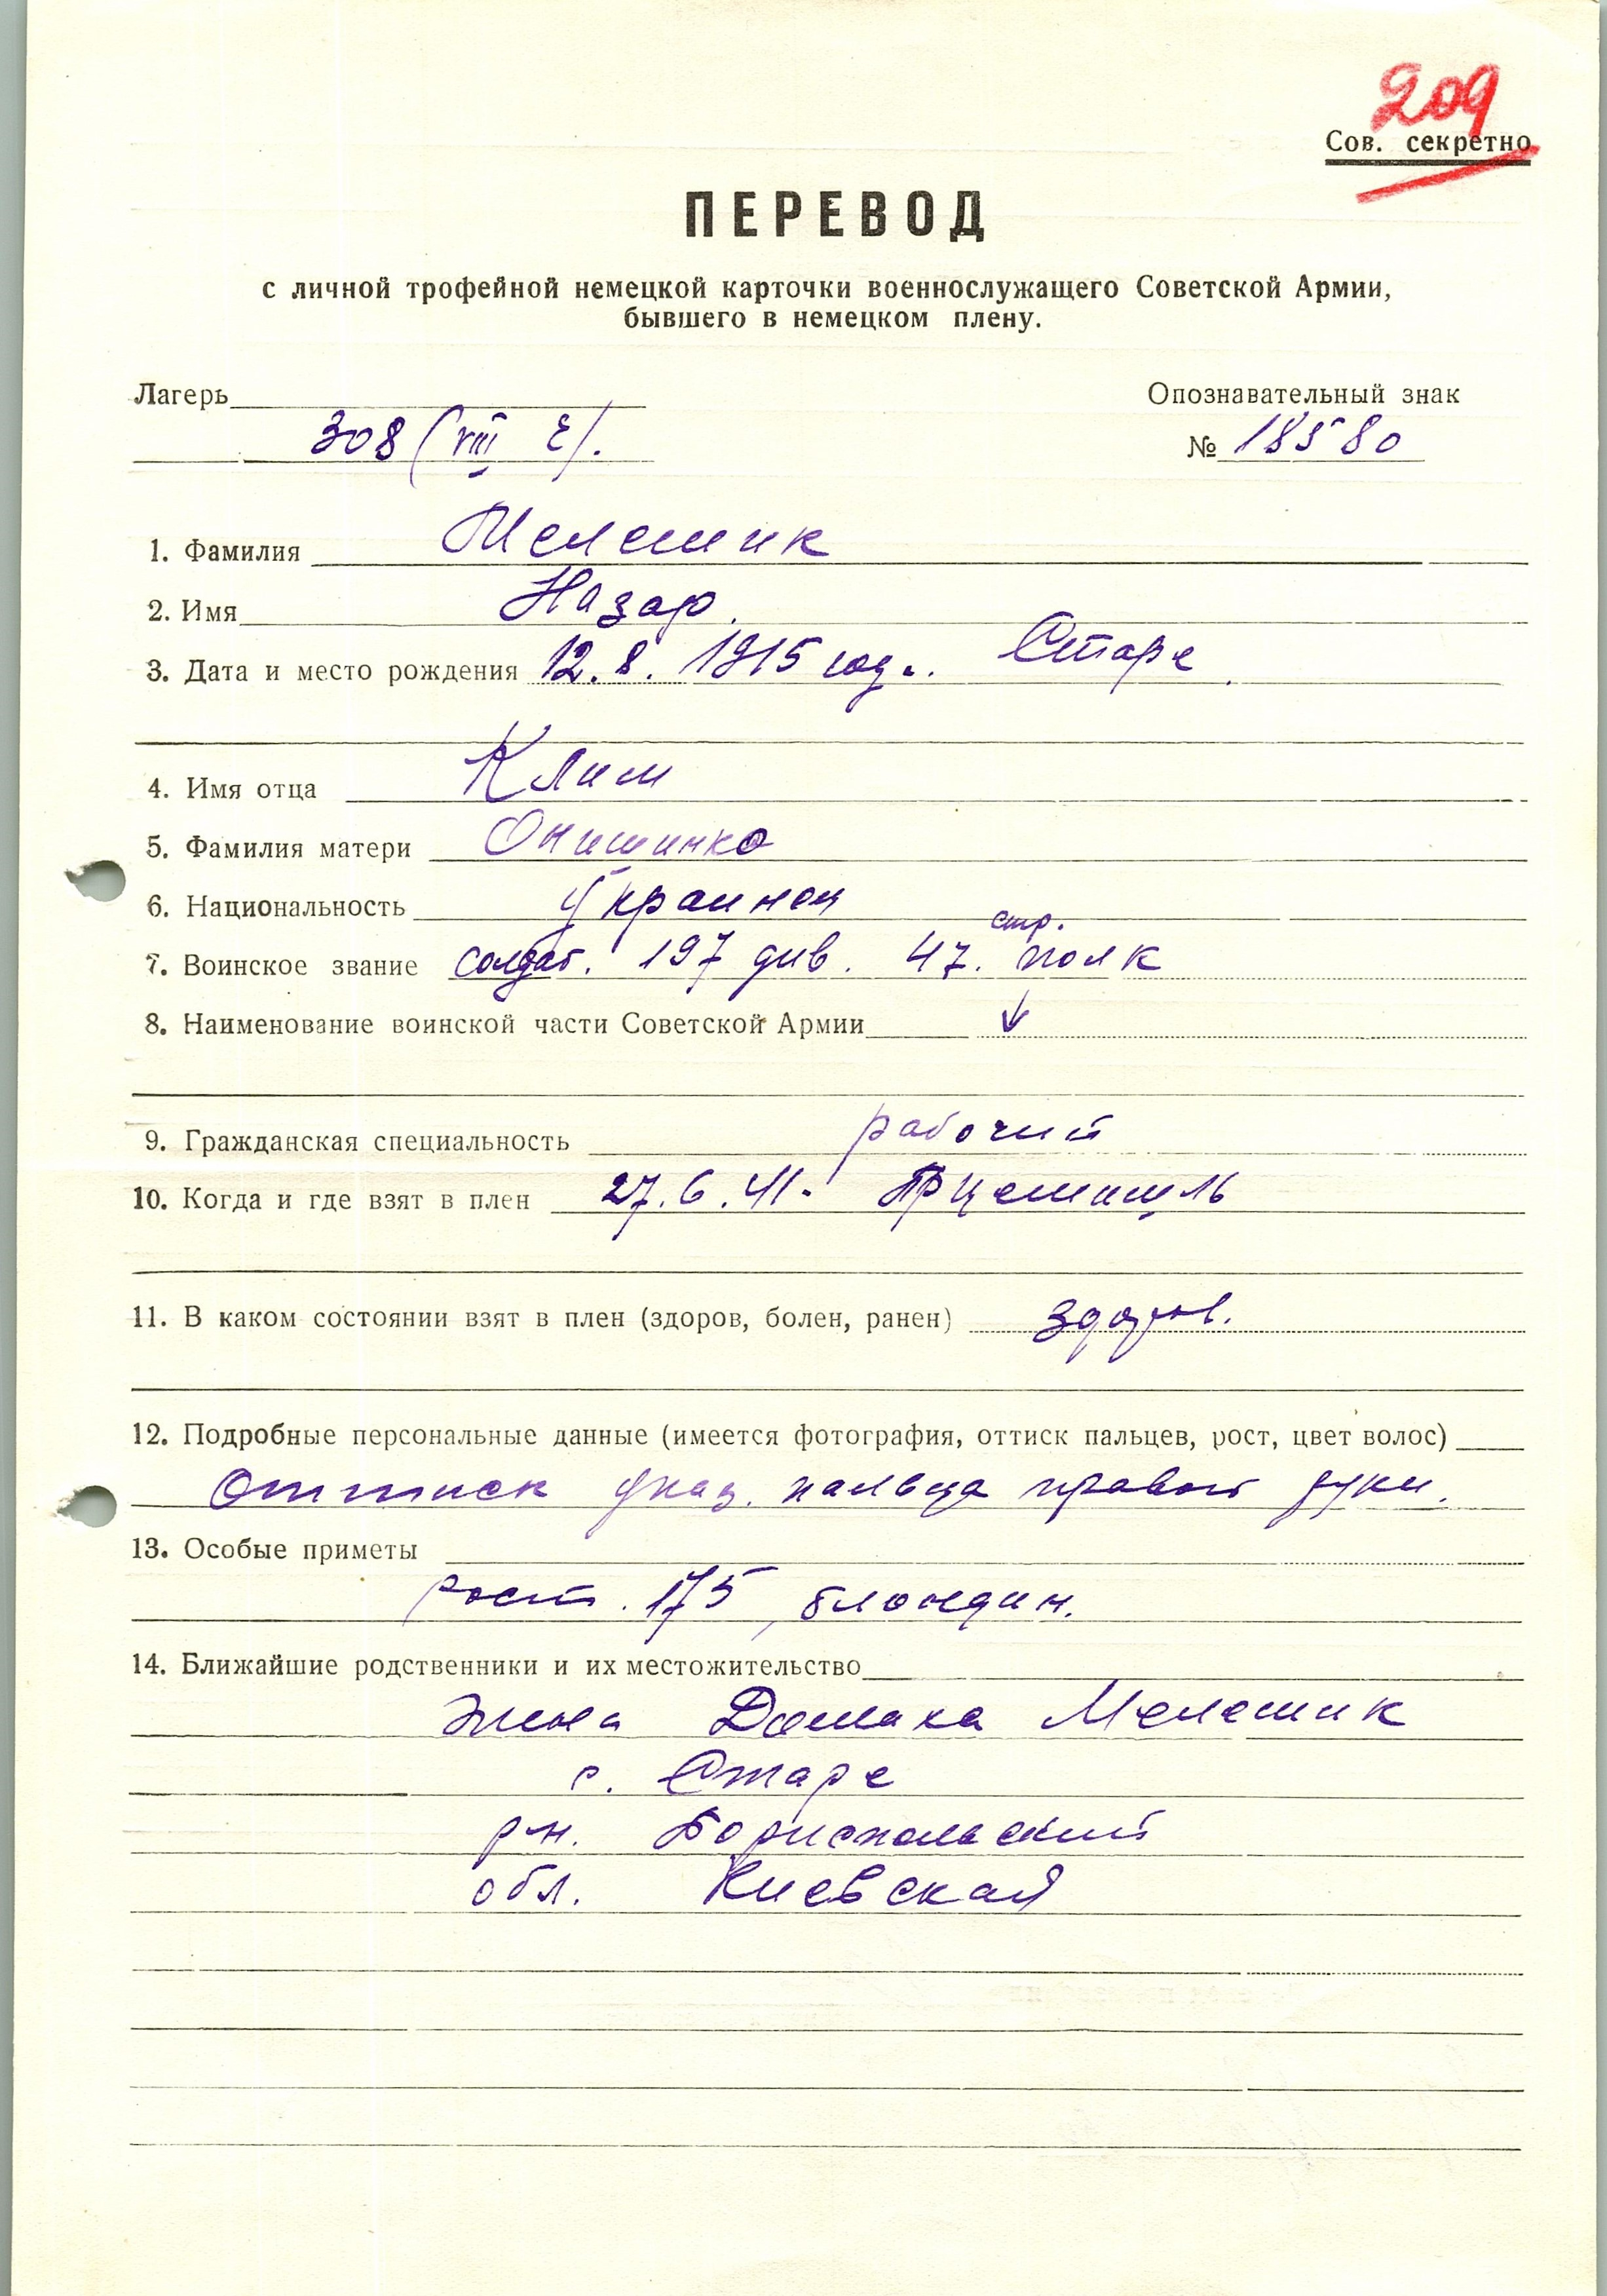 209
Сов. секретно
ПЕРЕВОД
с личной трофейной немецкой карточки военнослужащего Советской Армии,
бывшего в немецком плену.
Лагерь
308 (VIII E).
Опознавательный знак
№ 18580
1. Фамилия Мелешик
2. Имя Назар.
3. Дата и место рождения 12.8. 1915 год. Старе
4. Имя отца Клим
5. Фамилия матери Онишинко
6. Национальность Украинец
стр.
7. Воинское звание солдат. 197 див. 47. полк
8. Наименование воинской части Советской Армии ↓
9. Гражданская специальность рабочий
10. Когда и где взят в плен 27.6.41. Прцемишль
11. В каком состоянии взят в плен (здоров, болен, ранен) здоров.
12. Подробные персональные данные (имеется фотография, оттиск пальцев, рост, цвет волос)
Оттиск указ. пальца правой руки.
13. Особые приметы
рост. 175, блондин.
14. Ближайшие родственники и их местожительство
жена Домаха Мелешик
с. Старе
р-н. Бориспольский
обл. Киевская